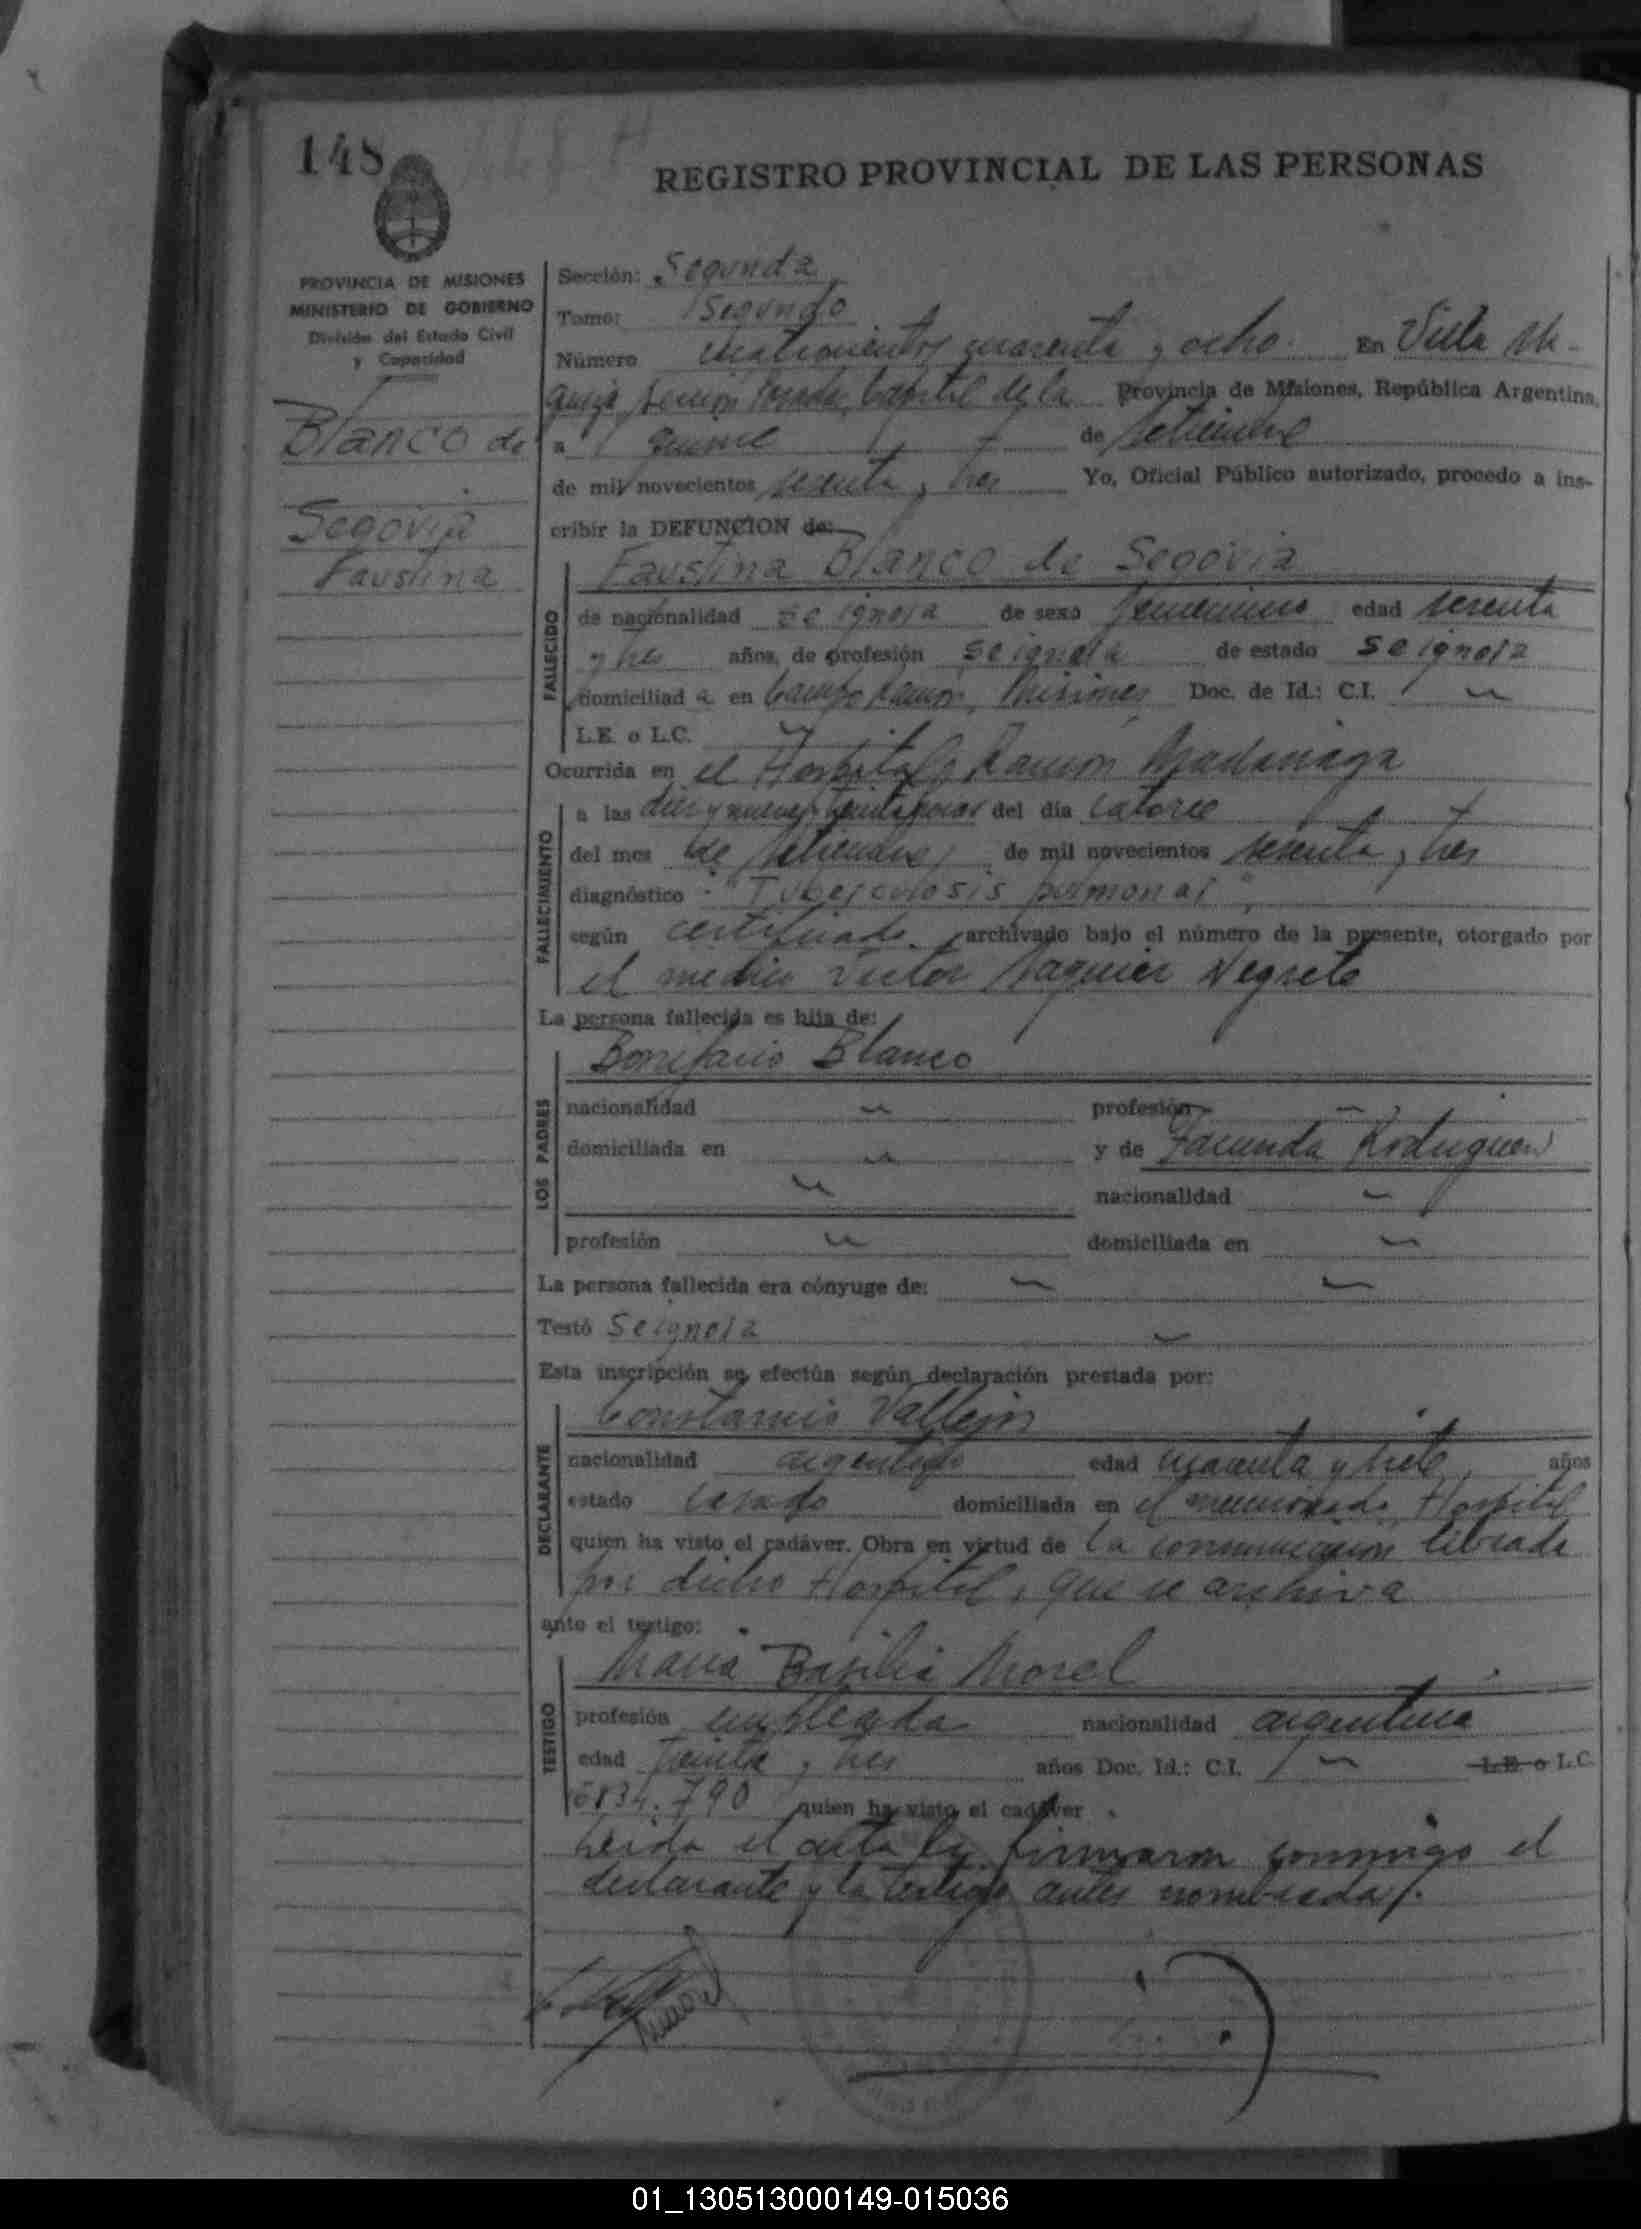 148
REGISTRO PROVINCIAL DE LAS PERSONAS
PROVINCIA DE MISIONES
MINISTERIO DE GOBIERNO
División del Estado Civil
y Capacidad
Blanco de
Segovia
Faustina
Sección: Segunda
Tomo: Segundo
Número cuatrocientos cuarenta y ocho En Villa Ur-
quiza Sección Segunda Capital de la Provincia de Misiones, República Argentina,
a quince de setiembre
de mil novecientos sesenta y tres Yo, Oficial Público autorizado, procedo a ins-
cribir la DEFUNCION de:
Faustina Blanco de Segovia
FALLECIDO
de nacionalidad se ignora de sexo femenino edad sesenta
y tres años, de profesión se ignora de estado se ignora
domiciliad a en Campo Ramón, Misiones Doc. de Id.: C.I.
L.E. o L.C.
Ocurrida en el Hospital Ramón Madariaga
FALLECIMIENTO
a las diez y nueve y treinta horas del día catorce
del mes de setiembre de mil novecientos sesenta y tres
diagnóstico "Tuberculosis pulmonar",
según certificado archivado bajo el número de la presente, otorgado por
el medico Victor Negrete
La persona fallecida es hija de:
LOS PADRES
Bonifacio Blanco
nacionalidad profesión
domiciliada en y de Facunda Rodriguez
nacionalidad
profesión domiciliada en
La persona fallecida era cónyuge de:
Testó Se ignora
Esta inscripción se efectúa según declaración prestada por:
DECLARANTE
Constancio Vallejos
nacionalidad argentino edad cuarenta y siete años
estado casado domiciliada en el mencionado Hospital
quien ha visto el cadáver. Obra en virtud de la comunicación librada
por dicho Hospital, que se archiva
ante el testigo:
TESTIGO
Maria Basilia Morel
profesión empleada nacionalidad argentina
edad treinta y tres años Doc. Id.: C.I. L.E. o L.C.
quien ha visto el cadáver
Leida el acta la firmaron conmigo el
declarante y la testigo antes nombrada.
01_130513000149-015036